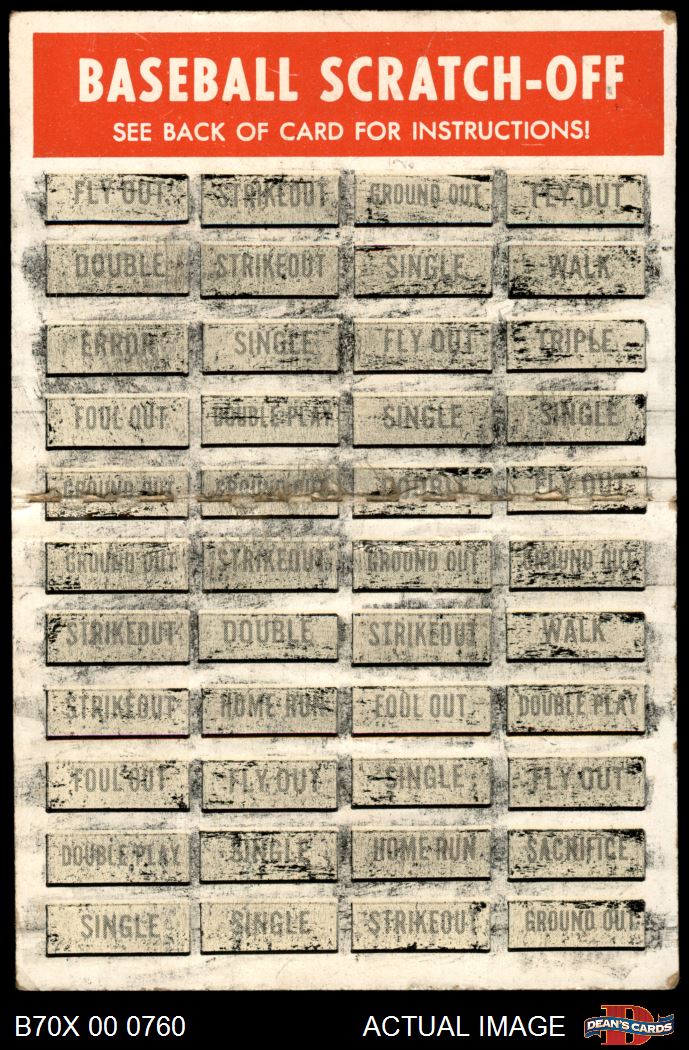 BASEBALL SCRATCH-OFF
SEE BACK OF CARD FOR INSTRUCTIONS!
FLY OUT STRIKEOUT GROUND OUT FLY OUT
DOUBLE STRIKEOUT SINGLE WALK
ERROR SINGLE FLY OUT TRIPLE
FOUL OUT DOUBLE PLAY SINGLE SINGLE
GROUND OUT GROUND OUT DOUBLE FLY OUT
GROUND OUT STRIKEOUT GROUND OUT GROUND OUT
STRIKEOUT DOUBLE STRIKEOUT WALK
STRIKEOUT HOME RUN FOUL OUT DOUBLE PLAY
FOUL OUT FLY OUT SINGLE FLY OUT
DOUBLE PLAY SINGLE HOME RUN SACRIFICE
SINGLE SINGLE STRIKEOUT GROUND OUT
B70X 00 0760 ACTUAL IMAGE D DEAN'S CARDS